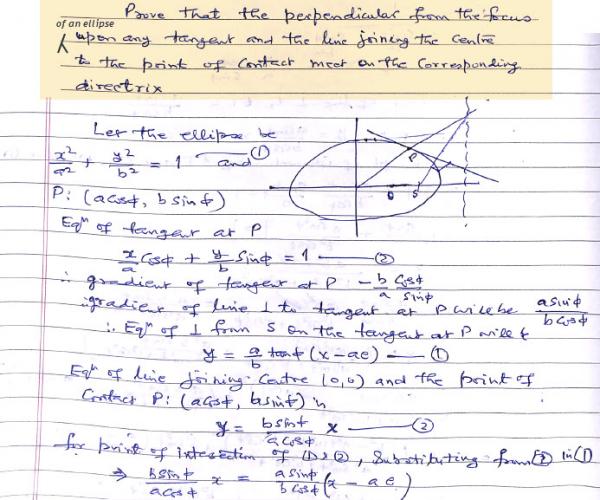 Prove that the perpendicular from the focus
of an ellipse
upon any tangent and the line joining the centre
to the point of contact meet on the corresponding
directrix
Let the ellipse be
x²/a² + y²/b² = 1 —— ① and
P: (a cosϕ, b sinϕ)
Eqⁿ of tangent at P
x/a cosϕ + y/b sinϕ = 1 —— ②
∴ gradient of tangent at P - b/a cosϕ/sinϕ
∴ gradient of line ⊥ to tangent at P will be a sinϕ/b cosϕ
∴ Eqⁿ of ⊥ from S on the tangent at P will be
y = a/b tanϕ (x - ae) —— ①
Eqⁿ of line joining centre (0,0) and the point of
contact P: (a cosϕ, b sinϕ) is
y = b sinϕ/a cosϕ x —— ②
for point of intersection of ① & ②, substituting from ② in ①
⇒ b sinϕ/a cosϕ x = a sinϕ/b cosϕ (x - ae)
P
S